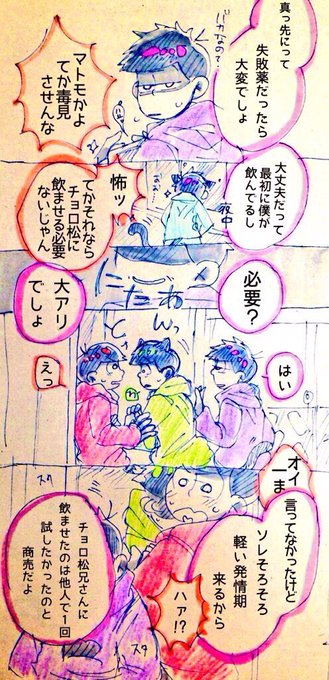 真っ先にって
失敗薬だったら
大変でしょ
バカなの?
マトモかよ
てか毒見
させんな
大丈夫だって
最初に僕が
飲んでるし
夜中
怖ッ
てかそれなら
チョロ松に
飲ませる必要
ないじゃん
必要?
大アリ
でしょ
はい
えっ
オイ
一ま
言ってなかったけど
ソレそろそろ
軽い発情期
来るから
ハァ!?
チョロ松兄さんに
飲ませたのは他人で1回
試したかったのと
商売だよ
スタ
スタ